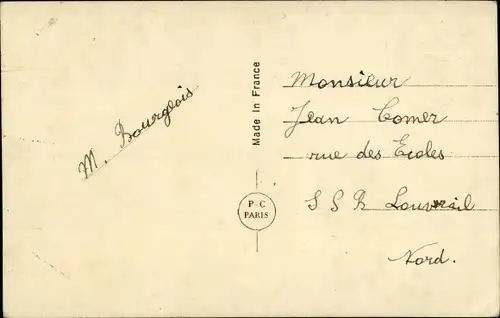 M. Bourglois
Made In France
P-C
PARIS
Monsieur
Jean Comer
rue des Ecoles
S S B Louvroil
Nord.